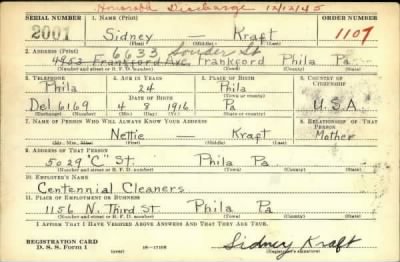 Honorable Discharge 12/12/45
SERIAL NUMBER 1. NAME (Print) ORDER NUMBER
2001 Sidney — Kraft 1107
(First) (Middle) (Last)
6633 Souder St
2. ADDRESS (Print)
4953 Frankford Ave. Frankford Phila Pa
(Number and street or R. F. D. number) (Town) (County) (State)
3. TELEPHONE 4. AGE IN YEARS 5. PLACE OF BIRTH 6. COUNTRY OF CITIZENSHIP
Phila 24 Phila
DATE OF BIRTH (Town or county)
Del 6169 4 8 1916 Pa U.S.A
(Exchange) (Number) (Mo.) (Day) (Yr.) (State or country)
7. NAME OF PERSON WHO WILL ALWAYS KNOW YOUR ADDRESS 8. RELATIONSHIP OF THAT PERSON
Nettie — Kraft Mother
(Mr., Mrs., Miss) (First) (Middle) (Last)
9. ADDRESS OF THAT PERSON
5029 "C" St. Phila Pa
(Number and street or R. F. D. number) (Town) (County) (State)
10. EMPLOYER'S NAME
Centennial Cleaners
11. PLACE OF EMPLOYMENT OR BUSINESS
1156 N. Third St. Phila Pa
(Number and street or R. F. D. number) (Town) (County) (State)
I AFFIRM THAT I HAVE VERIFIED ABOVE ANSWERS AND THAT THEY ARE TRUE.
REGISTRATION CARD
D. S. S. Form 1 (over) 16—17105 Sidney Kraft
(Registrant's signature)